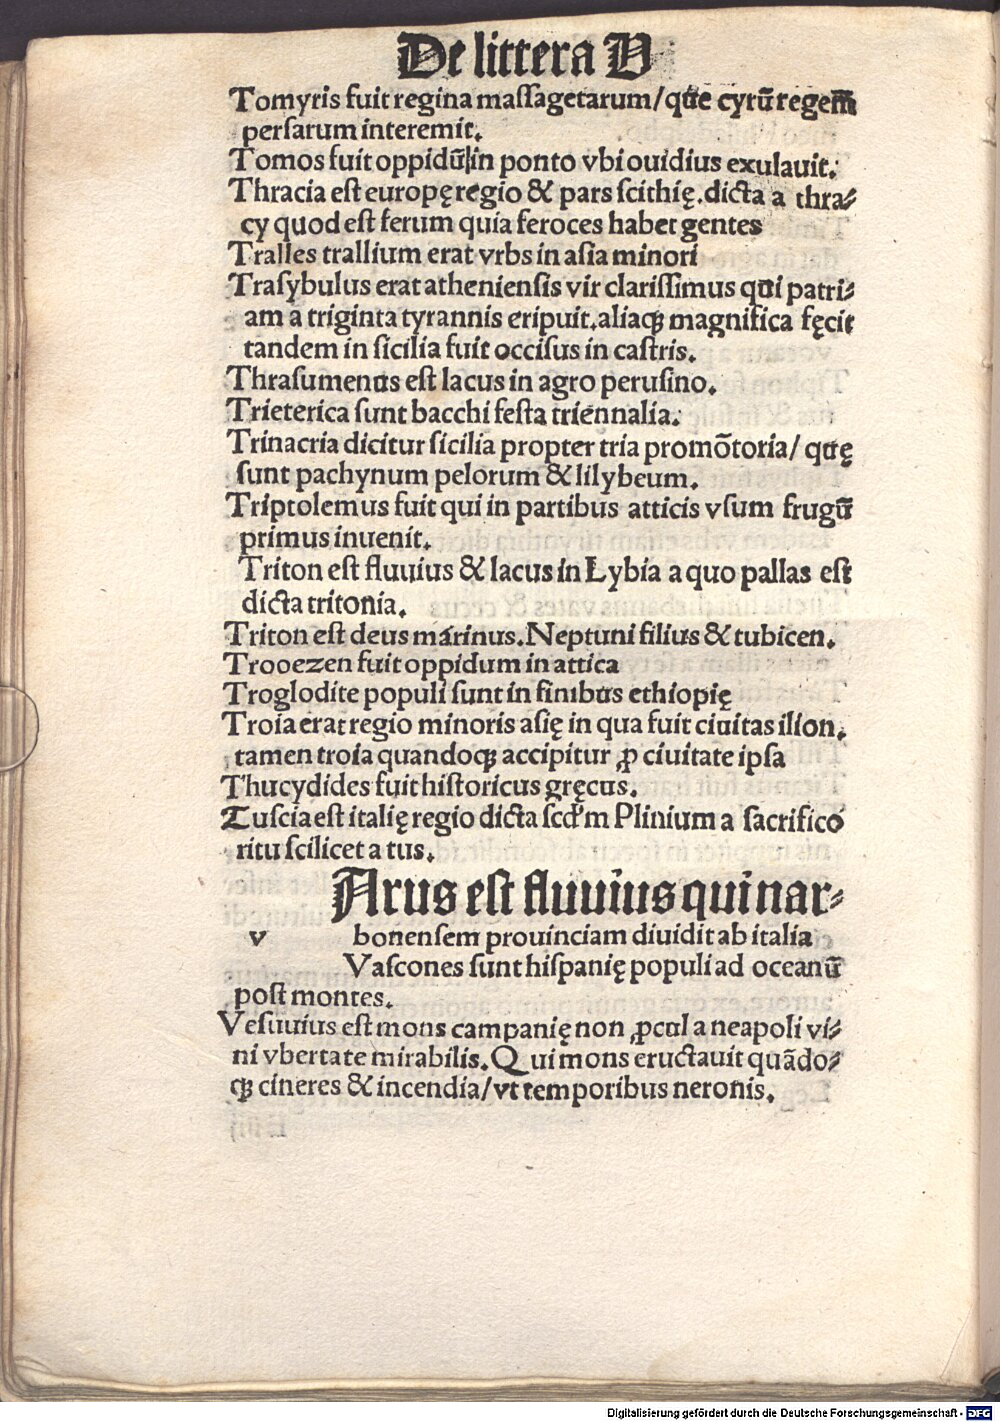 De littera V
Tomyris fuit regina maſſagetarum/que cyrū regem
perſarum interemit.
Tomos fuit oppidū in ponto vbi ouidius exulauit.
Thracia eſt europę regio & pars ſcithię.dicta a thra⸗
cy quod eſt ferum quia feroces habet gentes
Tralles trallium erat vrbs in aſia minori
Traſybulus erat athenienſis vir clariſſimus qui patri⸗
am a triginta tyrannis eripuit.aliaqꝫ magnifica fęcit
tandem in ſicilia fuit occiſus in caſtris.
Thraſumenus eſt lacus in agro peruſino.
Trieterica ſunt bacchi feſta triennalia.
Trinacria dicitur ſicilia propter tria promōtoria/ quę
ſunt pachynum pelorum & lilybeum.
Triptolemus fuit qui in partibus atticis vſum frugū
primus inuenit.
Triton eſt fluuius & lacus in Lybia a quo pallas eſt
dicta tritonia.
Triton eſt deus marinus.Neptuni filius & tubicen.
Trooezen fuit oppidum in attica
Troglodite populi ſunt in finibus ethiopię
Troia erat regio minoris aſię in qua fuit ciuitas ilion.
tamen troia quandoqꝫ accipitur ꝓ ciuitate ipſa
Thucydides fuit hiſtoricus gręcus.
Tuſcia eſt italię regio dicta ſcd'm Plinium a ſacrifico
ritu ſcilicet a tus.
Arus eſt fluuius qui nar⸗
v bonenſem prouinciam diuidit ab italia
Vaſcones ſunt hiſpanię populi ad oceanū
poſt montes.
Veſuuius eſt mons campanię non ꝓcul a neapoli vi⸗
ni vbertate mirabilis.Qui mons eructauit quādo⸗
qꝫ cineres & incendia/vt temporibus neronis.
Digitalisierung gefördert durch die Deutsche Forschungsgemeinschaft - DFG